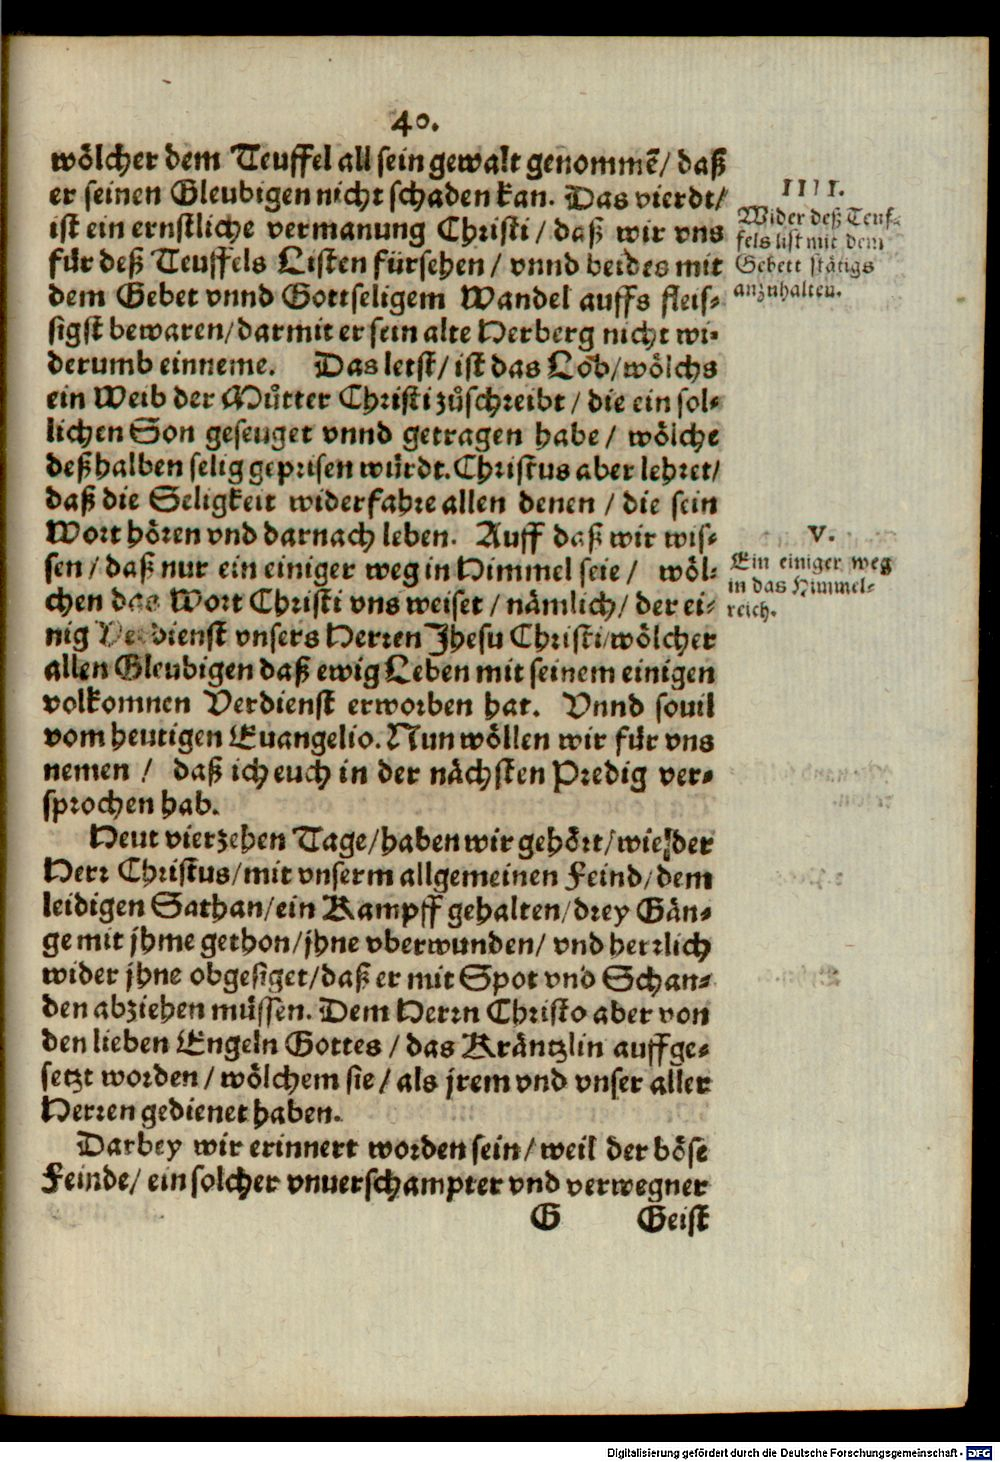 40.
wölcher dem Teuffel all sein gewalt genommē/ daß
er seinen Gleubigen nicht schaden kan. Das vierdt/
ist ein ernstliche vermanung Christi / daß wir vns
für deß Teuffels Listen fürsehen / vnnd beides mit
dem Gebet vnnd Gottseligem Wandel auffs fleis-
sigst bewaren/darmit er sein alte Herberg nicht wi-
derumb einneme. Das letst/ ist das Lob/wölchs
ein Weib der Můtter Christi zůschreibt / die ein sol-
lichen Son geseuget vnnd getragen habe / wölche
deßhalben selig geprisen würdt. Christus aber lehret/
daß die Seligkeit widerfahre allen denen / die sein
Wort hören vnd darnach leben. Auff daß wir wis-
sen / daß nur ein einiger weg in Himmel seie / wöl-
chen das Wort Christi vns weiset / nämlich/ der ei-
nig Verdienst vnsers Herren Jhesu Christi/wölcher
allen Gleubigen daß ewig Leben mit seinem einigen
volkomnen Verdienst erworben hat. Vnnd souil
vom heutigen Euangelio. Nun wöllen wir für vns
nemen / daß ich euch in der nächsten Predig ver-
sprochen hab.
Heut vierzehen Tage/haben wir gehört/wie der
Herr Christus/mit vnserm allgemeinen Feind/dem
leidigen Sathan/ein Kampff gehalten/drey Gän-
ge mit jhme gethon/jhne vberwunden/ vnd herrlich
wider jhne obgesiget/daß er mit Spot vnd Schan-
den abziehen müssen. Dem Herrn Christo aber von
den lieben Engeln Gottes / das Kräntzlin auffge-
setzt worden / wölchem sie / als jrem vnd vnser aller
Herren gedienet haben.
Darbey wir erinnert worden sein/ weil der böse
Feinde/ ein solcher vnuerschampter vnd verwegner
G Geist
IIII.
Wider deß Teuf-
fels list mit dem
Gebett stätigs
anzuhalten.
V.
Ein einiger weg
in das Himmel-
reich.
Digitalisierung gefördert durch die Deutsche Forschungsgemeinschaft - DFG